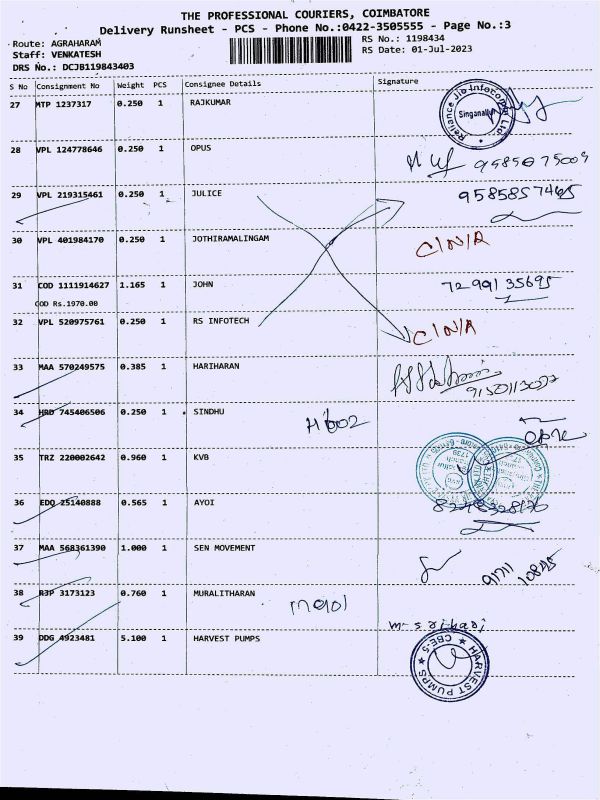 THE PROFESSIONAL COURIERS, COIMBATORE
Delivery Runsheet - PCS - Phone No.:0422-3505555 - Page No.:3
Route: AGRAHARAM
RS No.: 1198434
Staff: VENKATESH
RS Date: 01-Jul-2023
DRS No.: DCJB119843403
S No Consignment No Weight PCS Consignee Details Signature
27 MTP 1237317 0.250 1 RAJKUMAR
Reliance Jio Infocomm Ltd
Singanallur
28 VPL 124778646 0.250 1 OPUS
9585075009
29 VPL 219315461 0.250 1 JULICE 9585857465
30 VPL 401984170 0.250 1 JOTHIRAMALINGAM C/N/A
31 COD 1111914627 1.165 1 JOHN 7299135695
COD Rs.1970.00
32 VPL 520975761 0.250 1 RS INFOTECH C/N/A
33 MAA 570249575 0.385 1 HARIHARAN
34 HRD 745406506 0.250 1 SINDHU H602
35 TRZ 220002642 0.960 1 KVB
36 EDO 25140888 0.565 1 AYOI
37 MAA 568361390 1.000 1 SEN MOVEMENT
38 RJP 3173123 0.760 1 MURALITHARAN
39 DDG 4923481 5.100 1 HARVEST PUMPS
m-srihari
HARVEST PUMPS
CBE-5